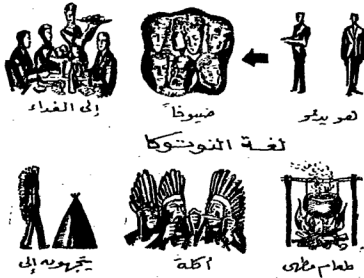 هو يدعو ضيوفاً إلى الغداء
لغة النوتوكا
طعام مطهى أكلة يتجهون إلى